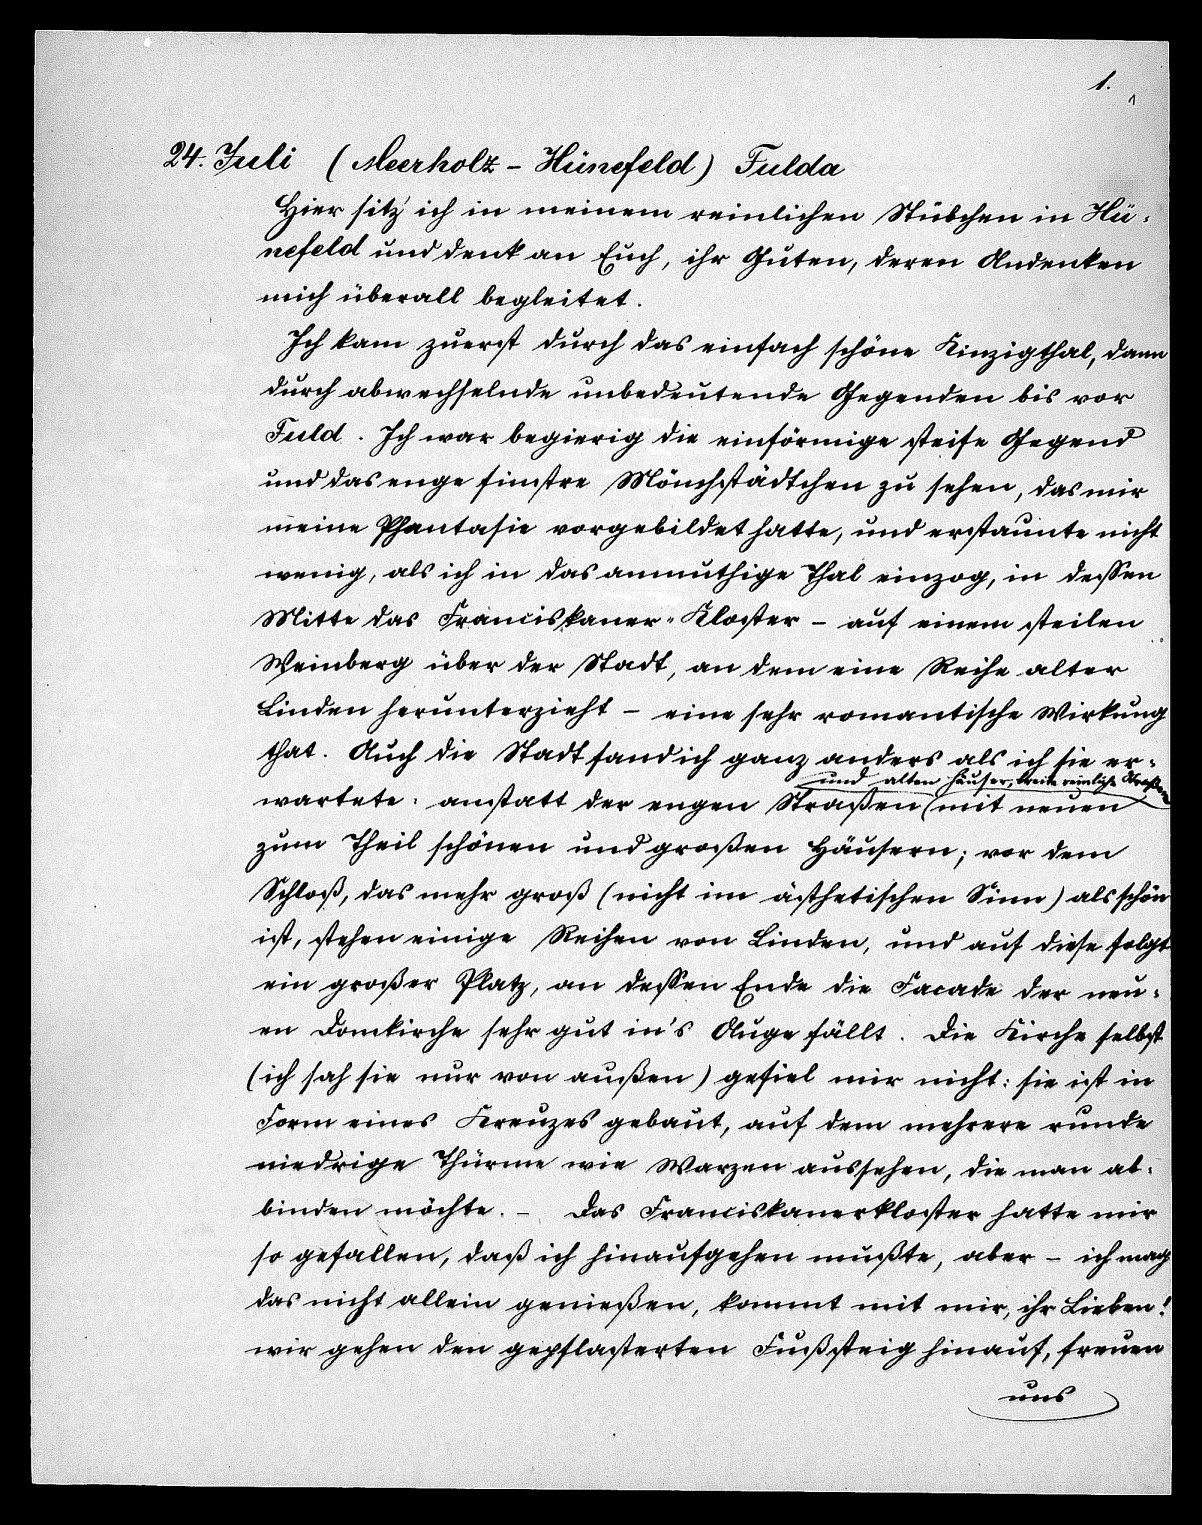 1.
1
24. Juli (Meerholz - Hünefeld) Fulda
Hier sitz' ich in meinem reinlichen Stübchen in Hü-
nefeld und denk an Euch, ihr Guten, deren Andenken
mich überall begleitet.
Ich kam zuerst durch das einfach schöne Kinzigthal, dann
durch abwechselnde unbedeutende Gegenden bis vor
Fuld. Ich war begierig die einförmige steife Gegend
und das enge finstre Mönchstädtchen zu sehen, das mir
meine Phantasie vorgebildet hatte, und erstaunte nicht
wenig, als ich in das anmuthige Thal einzog, in dessen
Mitte das Franciskaner-Kloster - auf einem steilen
Weinberg über der Stadt, an dem eine Reihe alter
Linden herunterzieht - eine sehr romantische Wirkung
that. Auch die Stadt fand ich ganz anders als ich sie er-
und alten Häuser, breite reinliche Straßen
wartete: anstatt der engen Straßen (mit neuen
zum Theil schönen und großen Häusern; vor dem
Schloß, das mehr groß (nicht im ästhetischen Sinn) als schön
ist, stehen einige Reihen von Linden, und auf diese folgt
ein großer Platz, an dessen Ende die Facade der neu-
en Domkirche sehr gut in's Auge fällt. Die Kirche selbst
(ich sah sie nur von außen) gefiel mir nicht: sie ist in
Form eines Kreuzes gebaut, auf dem mehrere runde
niedrige Thürme wie Warzen aussehen, die man ab-
binden möchte. - Das Franciskanerkloster hatte mir
so gefallen, daß ich hinaufgehen mußte, aber - ich mag
das nicht allein genießen, kommt mit mir, ihr Lieben!
wir gehen den gepflasterten Fußsteig hinauf, freuen
uns